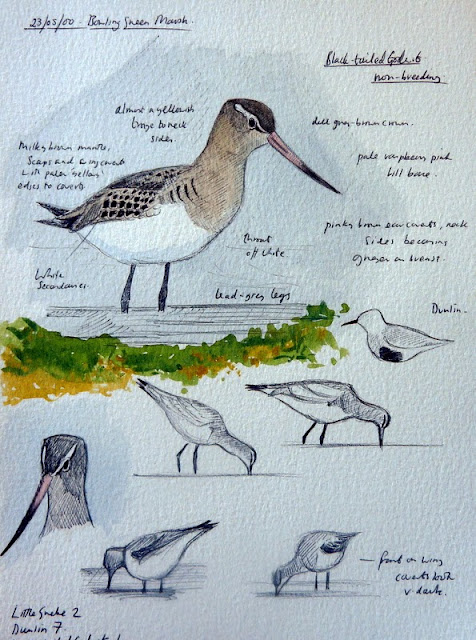 23/05/00 - Bowling Green Marsh.
Black-tailed Godwits
non-breeding
almost a yellowish
tinge to neck
sides.
dull grey-brown crown.
Milky brown mantle,
Scaps and wing coverts
with paler 'yellow'
edges to coverts.
pale raspberry pink
bill base.
pinky brown ear coverts, neck
sides becoming
greyer on breast.
throat
off white
White
Secondaries
lead-grey legs
Dunlin.
on wing
coverts look
v. dark.
Little 2
Dunlin 7